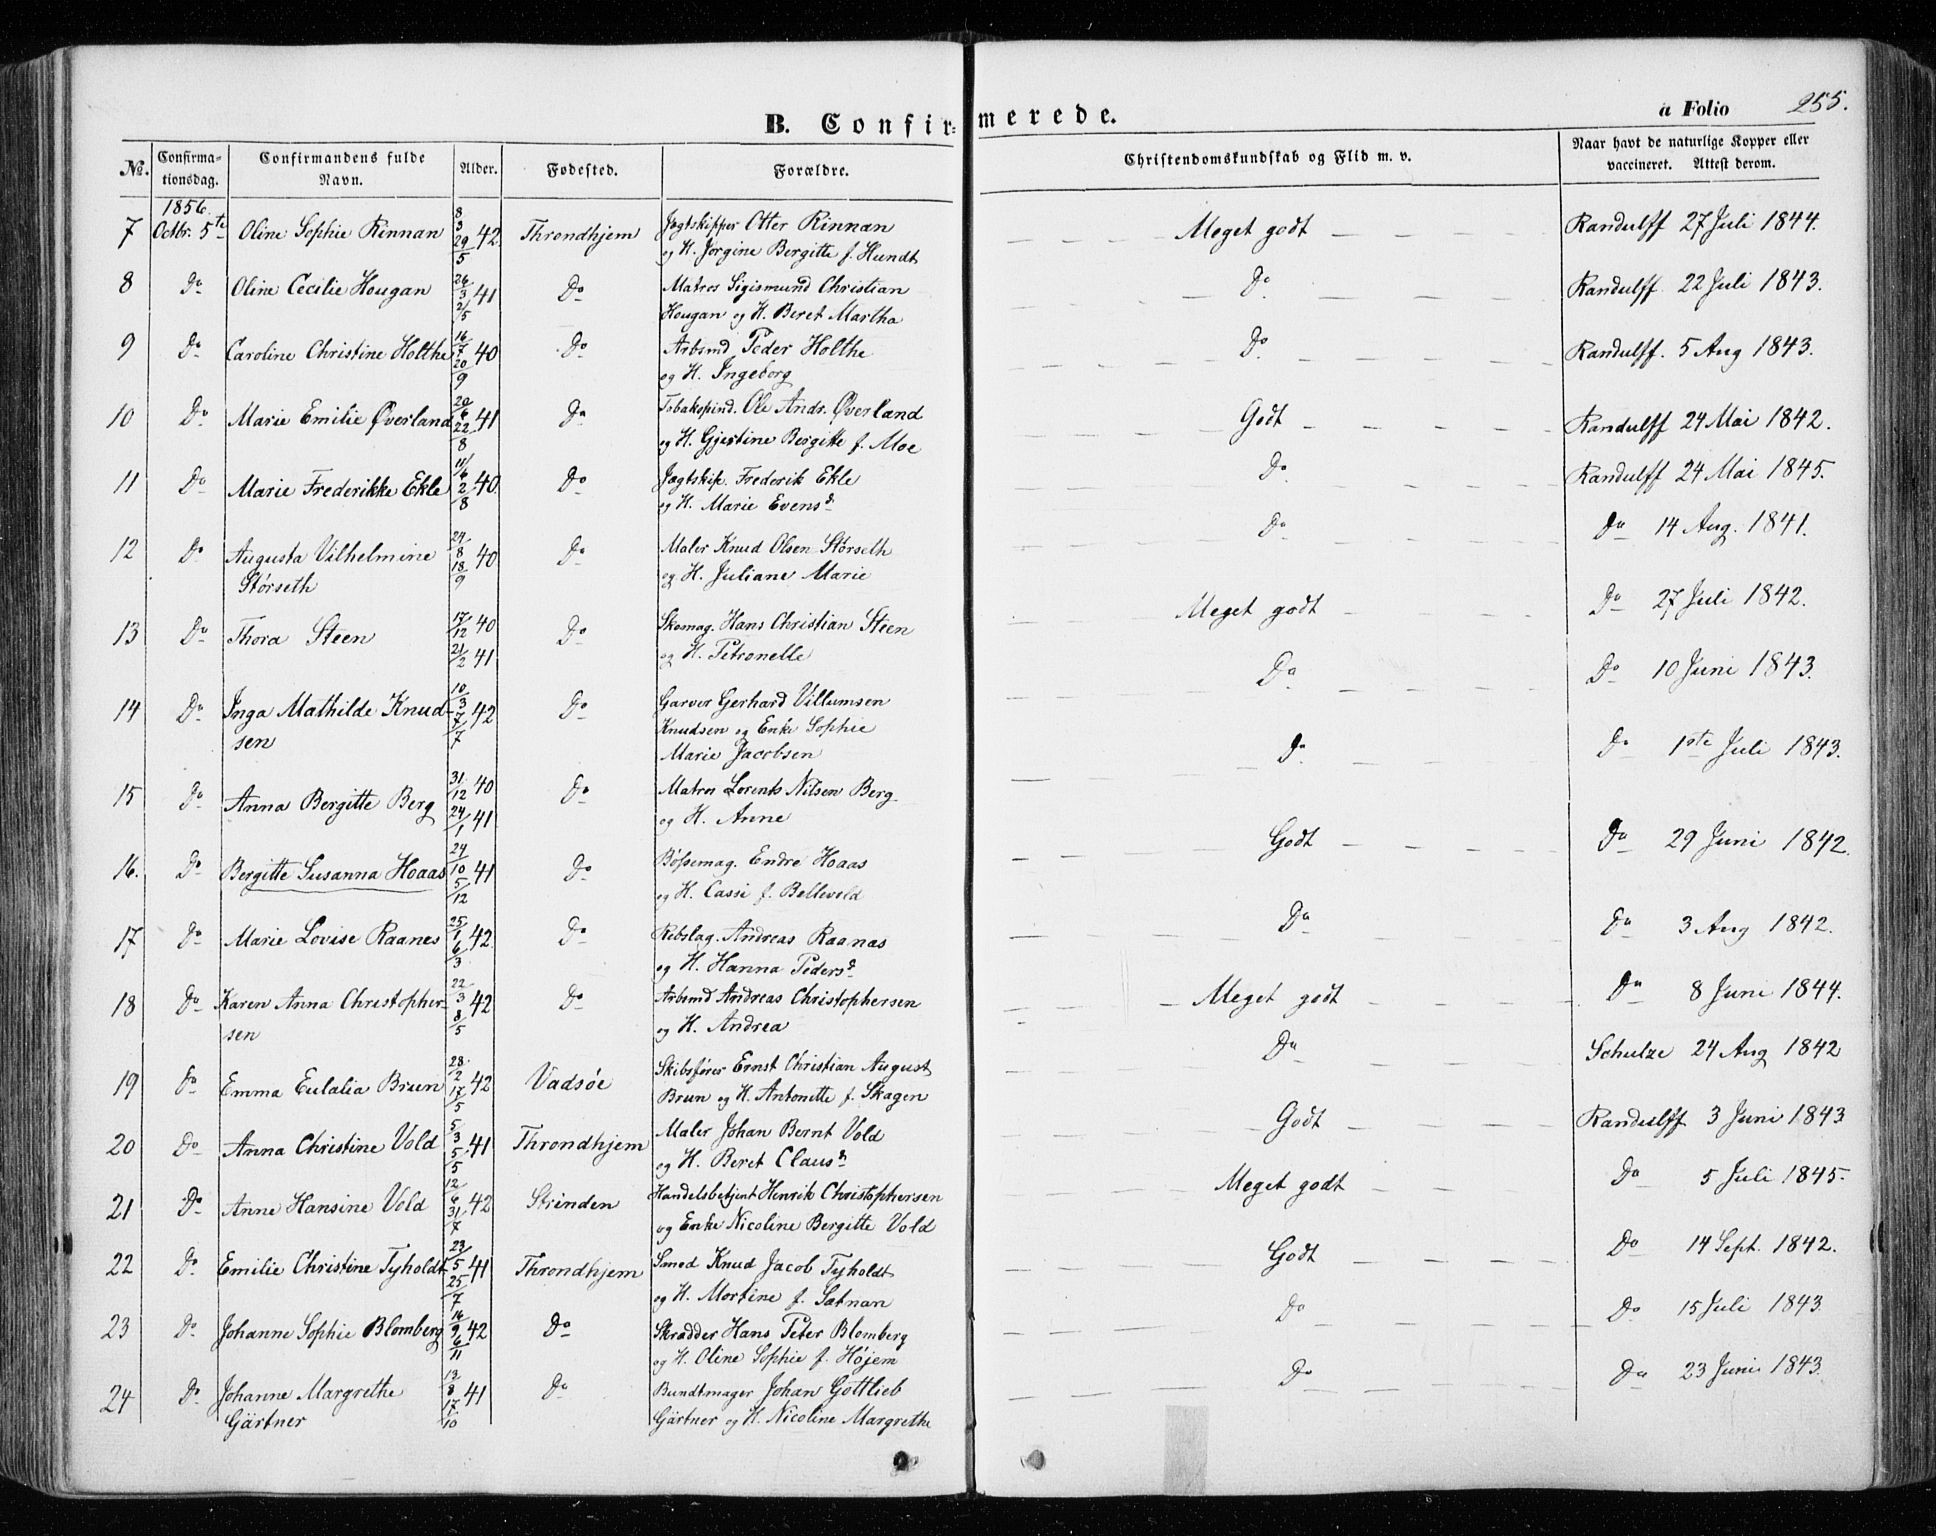 B. Confirmerede.
a Folio 255.
No. Confirmationsdag. Confirmandens fulde Navn. Alder. Fødested. Forældre. Christendomskundskab og Flid m. v. Naar havt de naturlige Kopper eller vaccineret. Attest derom.
1856.
7 Octbr. 5te Oline Sophie Rinnan 8/3 29/5 42 Throndhjem Jagtskipper Otter Rinnan Meget godt Randulff 27 Juli 1844.
og H. Jørgine Bergitte f. Hundt
8 Do Oline Cecilie Hougan 26/3 2/5 41 Do Matros Sigismund Christian Do Randulff 22 Juli 1843.
Hougan og H. Beret Martha
9 Do Caroline Christine Holthe 16/7 20/9 40 Do Arbsmd Peder Holthe Do Randulff. 5 Aug 1843.
og H. Ingeborg
10 Do Marie Emilie Øverland 20/6 22/8 41 Do Tobakspind. Ole Andr. Øverland Godt Randulff 24 Mai 1842.
og H. Gjertine Bergitte f. Moe
11 Do Marie Frederikke Ekle 11/6 2/8 40 Do Jægtskip. Frederik Ekle Do Randulff 24 Mai 1845.
og H. Marie Evensd
12 Do Augusta Vilhelmine 24/8 18/9 40 Do Maler Knud Olsen Størseth Do Do 14 Aug. 1841.
Størseth og H. Juliane Marie
13 Do Thora Steen 17/12 40 Do Skomag. Hans Christian Steen Meget godt Do 27 Juli 1842.
21/2 41 og H. Petronelle
14 Do Inga Mathilde Knud- 10/3 7/7 42 Do Garver Gerhard Villumsen Do Do 10 Juni 1843.
sen Knudsen og Enke Sophie
Marie Jacobsen
15 Do Anna Bergitte Berg 31/12 40 Do Matros Lorents Nilsen Berg Do Do 1ste Juli 1843.
24/1 41 og H. Anne
16. Do Bergitte Susanna Hoaas 24/10 5/12 41 Do Bøssemag. Endre Hoaas Godt Do 29 Juni 1842.
og H. Cassi f. Bellevold
17 Do Marie Lovise Raanes 25/1 6/3 42 Do Rebslag. Andreas Raanas Do Do 3 Aug 1842.
og H. Hanna Pedersd
18 Do Karen Anna Christopher- 22/3 8/5 42 Do Arbsmd Andreas Christophersen Meget godt Do 8 Juni 1844.
sen og H. Andrea
19 Do Emma Eulalia Brun 28/2 17/5 42 Vadsøe Skibsfører Ernst Christian August Do Schulze 24 Aug 1842
Brun og H. Antonette f. Skagen
20 Do Anna Christine Vold 5/3 5/5 41 Throndhjem Maler Johan Bernt Vold Godt Randulff 3 Juni 1843
og H. Beret Clausd
21 Do Anne Hansine Vold 12/6 31/7 42 Strinden Handelsbetjent Henrik Christophersen Meget godt Do 5 Juli 1845.
og Enke Nicoline Bergitte Vold
22 Do Emilie Christine Tyholdt 23/5 25/7 41 Throndhjem Smed Knud Jacob Tyholdt Godt Do 14 Sept. 1842.
og H. Mortine f. Satnan
23 Do Johanne Sophie Blomberg 16/9 6/11 42 Do Skrædder Hans Peter Blomberg Do Do 15 Juli 1843
og H. Oline Sophie f. Højem
24 Do Johanne Margrethe 12/8 17/10 41 Do Bundtmager Johan Gottlieb Do Do 23 Juni 1843.
Gärtner Gärtner og H. Nicoline Margrethe